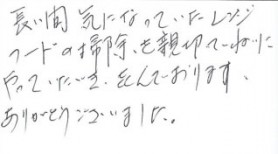 長い間 気になっていたレンジ
フードの掃除、も親切ていねいに
やっていただき、喜んでおります、
ありがとうございました。